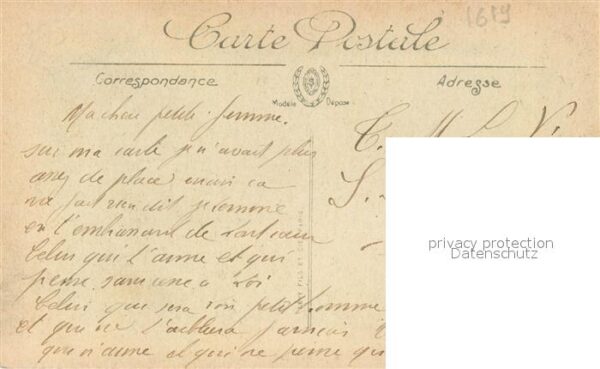 1619
Carte Postale
Correspondance
Adresse
Modèle Déposé
Ma cher petite femme.
sur ma carte je n'avait plus
assez de place mais ca
ne fait rien dit
en l'embrassant de tout cœur
Celui qui t'aime et qui
pense sans cesse a toi
Celui que sera ton petit homme
et qui ne t'oublira jamais
qui n'aime et qui ne pense qu
privacy protection
Datenschutz